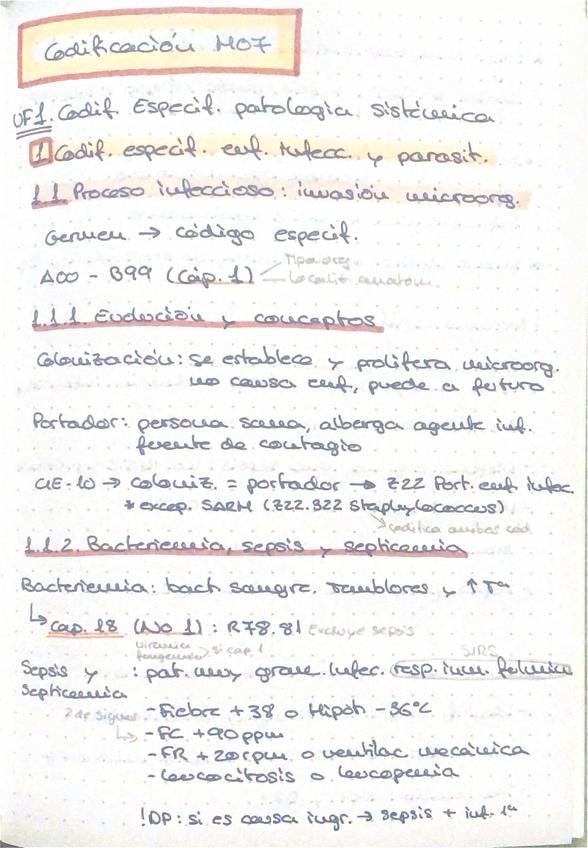 Codificación M07
UF1. Codif. Especif. patología sistémica
1 Codif. especif. enf. Infecc. y parasit.
1.1 Proceso infeccioso: invasión microorg.
Germen → código especif.
A00 - B99 (Cap. 1)
Localiz anatóm.
1.1.1. Evolución y conceptos
Colonización: se establece y prolifera microorg.
no causa enf, puede a futuro
Portador: persona sana, alberga agente inf.
fuente de contagio
CIE-10 → coloniz. = portador → Z22 Port. enf. infec.
* excep. SARM (Z22.322 Staphylococcus)
codifica ambas cód.
1.1.2. Bacteriemia, sepsis y septicemia
Bacteriemia: bact sangre. Temblores y ↑ Tª
↳ Cap. 18 (No 1) : R78.81 Excluye sepsis
viremia
fungemia > si cap. 1
SIRS
Sepsis y : pat. muy grave Infec. (resp. inm. fulmin
Septicemia
- Fiebre +38 o Hipot -36°C
2 de signos ↳ - FC +90 ppm
- FR +20 rpm o ventilac mecánica
- leucocitosis o leucopenia
!DP: si es causa ingr. → sepsis + inf. 1ª